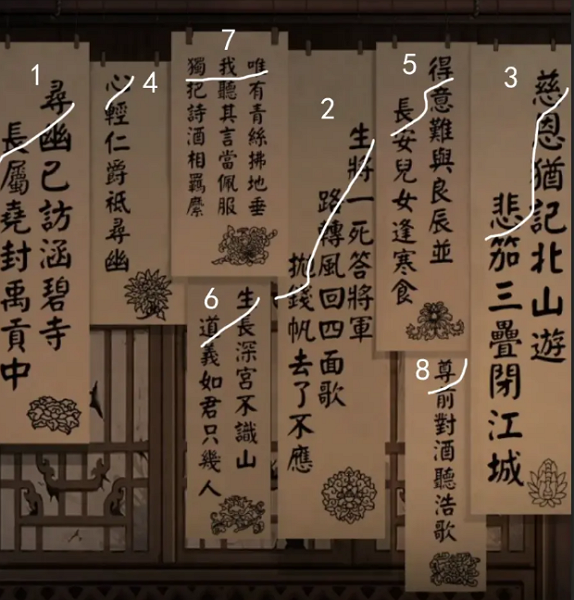 3
慈恩猶記北山遊
悲笳三疊閉江城
5
得意難與良辰並
長安兒女逢寒食
8
尊前對酒聽浩歌
2
生將一死答將軍
路轉風回四面歌
拋錢帆去了不應
7
唯有青絲拂地垂
我聽其言當佩服
獨把詩酒相羈縻
6
生長深宮不識山
道義如君只幾人
4
心輕仁爵祗尋幽
1
尋幽已訪涵碧寺
長屬堯封禹貢中